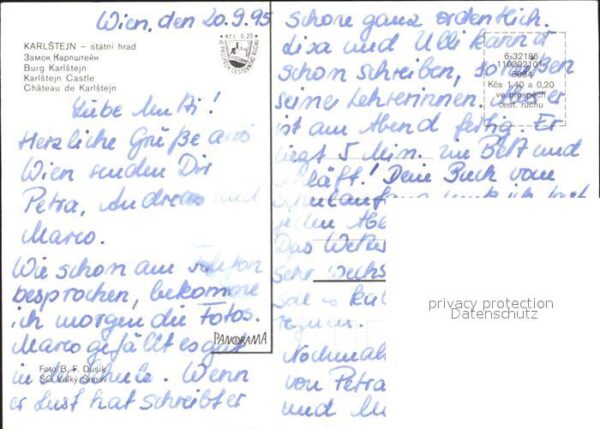 Wien, den 20.9.95
KARLŠTEJN – státní hrad
Замок Карлштейн
Burg Karlštejn
Karlštejn Castle
Château de Karlštejn
KČS 0,20
Liebe Mutti!
Herzliche Grüße aus
Wien senden Dir
Petra, Andreas und
Marco.
Wie schon am Telefon
besprochen, bekomme
ich morgen die Fotos.
Marco gefällt es gut
in der Schule. Wenn
er Lust hat schreibt er
Foto B. F. Dusík
SG Velký Šenov
PANORAMA
schon ganz ordentlich.
Lisa und Ulli kann er
schon schreiben,
seiner Lehrerinnen. Aber er
ist am Abend fertig. Er
liegt 5 Min. im Bett und
schläft! Dein Buch vom
jeden
Das Wetter
sehr
regnen.
Nochmals
von Petra
und
6-32186
Kčs 1,40 a 0,20
ve prospěch
čest. ruchu
privacy protection
Datenschutz